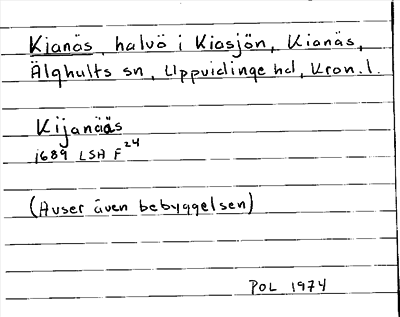 Kianäs, halvö i Kiasjön, Kianäs,
Älghults sn, Uppvidinge hd, Kron. l.
Kijanääs
1689 LSA F24
(Avser även bebyggelsen)
POL 1974